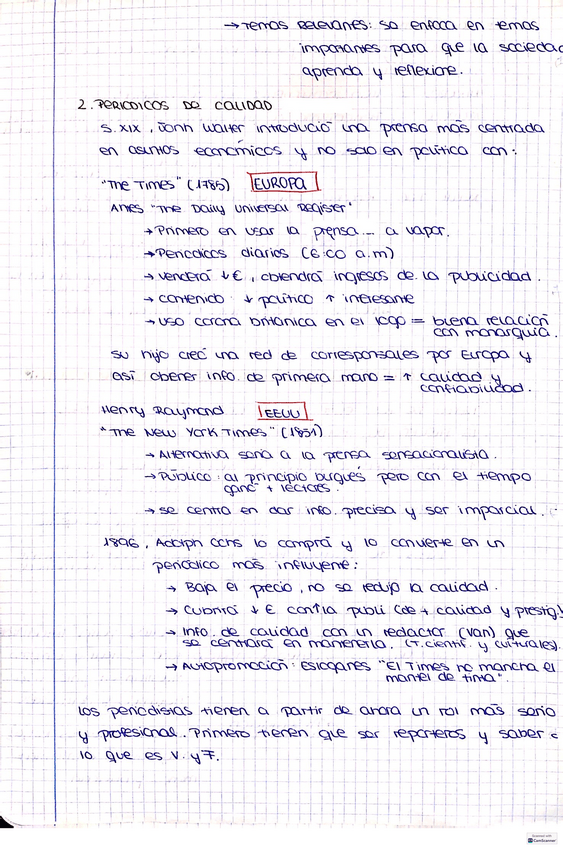 → Temas relevantes: se enfoca en temas
importantes para que la sociedad
aprenda y reflexione.
2. PERIODICOS DE CALIDAD
S. XIX, Jonh Walter introdució una prensa más centrada
en asuntos económicos y no solo en política con:
"The Times" (1785) EUROPA
Antes "The Daily Universal Register"
→ Primero en usar la prensa... a vapor.
→ Periodicos diarios (6:00 a.m)
→ venderá ↓ €, obtendrá ingresos de la publicidad.
→ contenido ↓ político ↑ interesante
→ uso corona británica en el logo = buena relación
con monarquía.
Su hijo creó una red de corresponsales por Europa y
así obener info. de primera mano = ↑ calidad y
confiabilidad.
Henry Raymond EEUU
"The New York Times" (1851)
→ Alternativa seria a la prensa sensacionalista.
→ Público: al principio burgués pero con el tiempo
ganó + lectores.
→ se centra en dar info. precisa y ser imparcial.
1896, Adolph Ochs lo compra y lo convierte en un
periódico más influyente:
→ Baja el precio, no se redujo la calidad.
→ Cubrirá ↓ € con la publi (de + calidad y prestig.)
→ Info. de calidad con un redactor (Van) que
se centrará en mantenerla. (T. científ. y culturales).
→ Autopromoción: eslóganes "El Times no mancha el
mantel de tinta".
Los periodistas tienen a partir de ahora un rol más serio
y profesional. Primero tienen que ser reporteros y saber
lo que es V. y F.
Scanned with
CamScanner